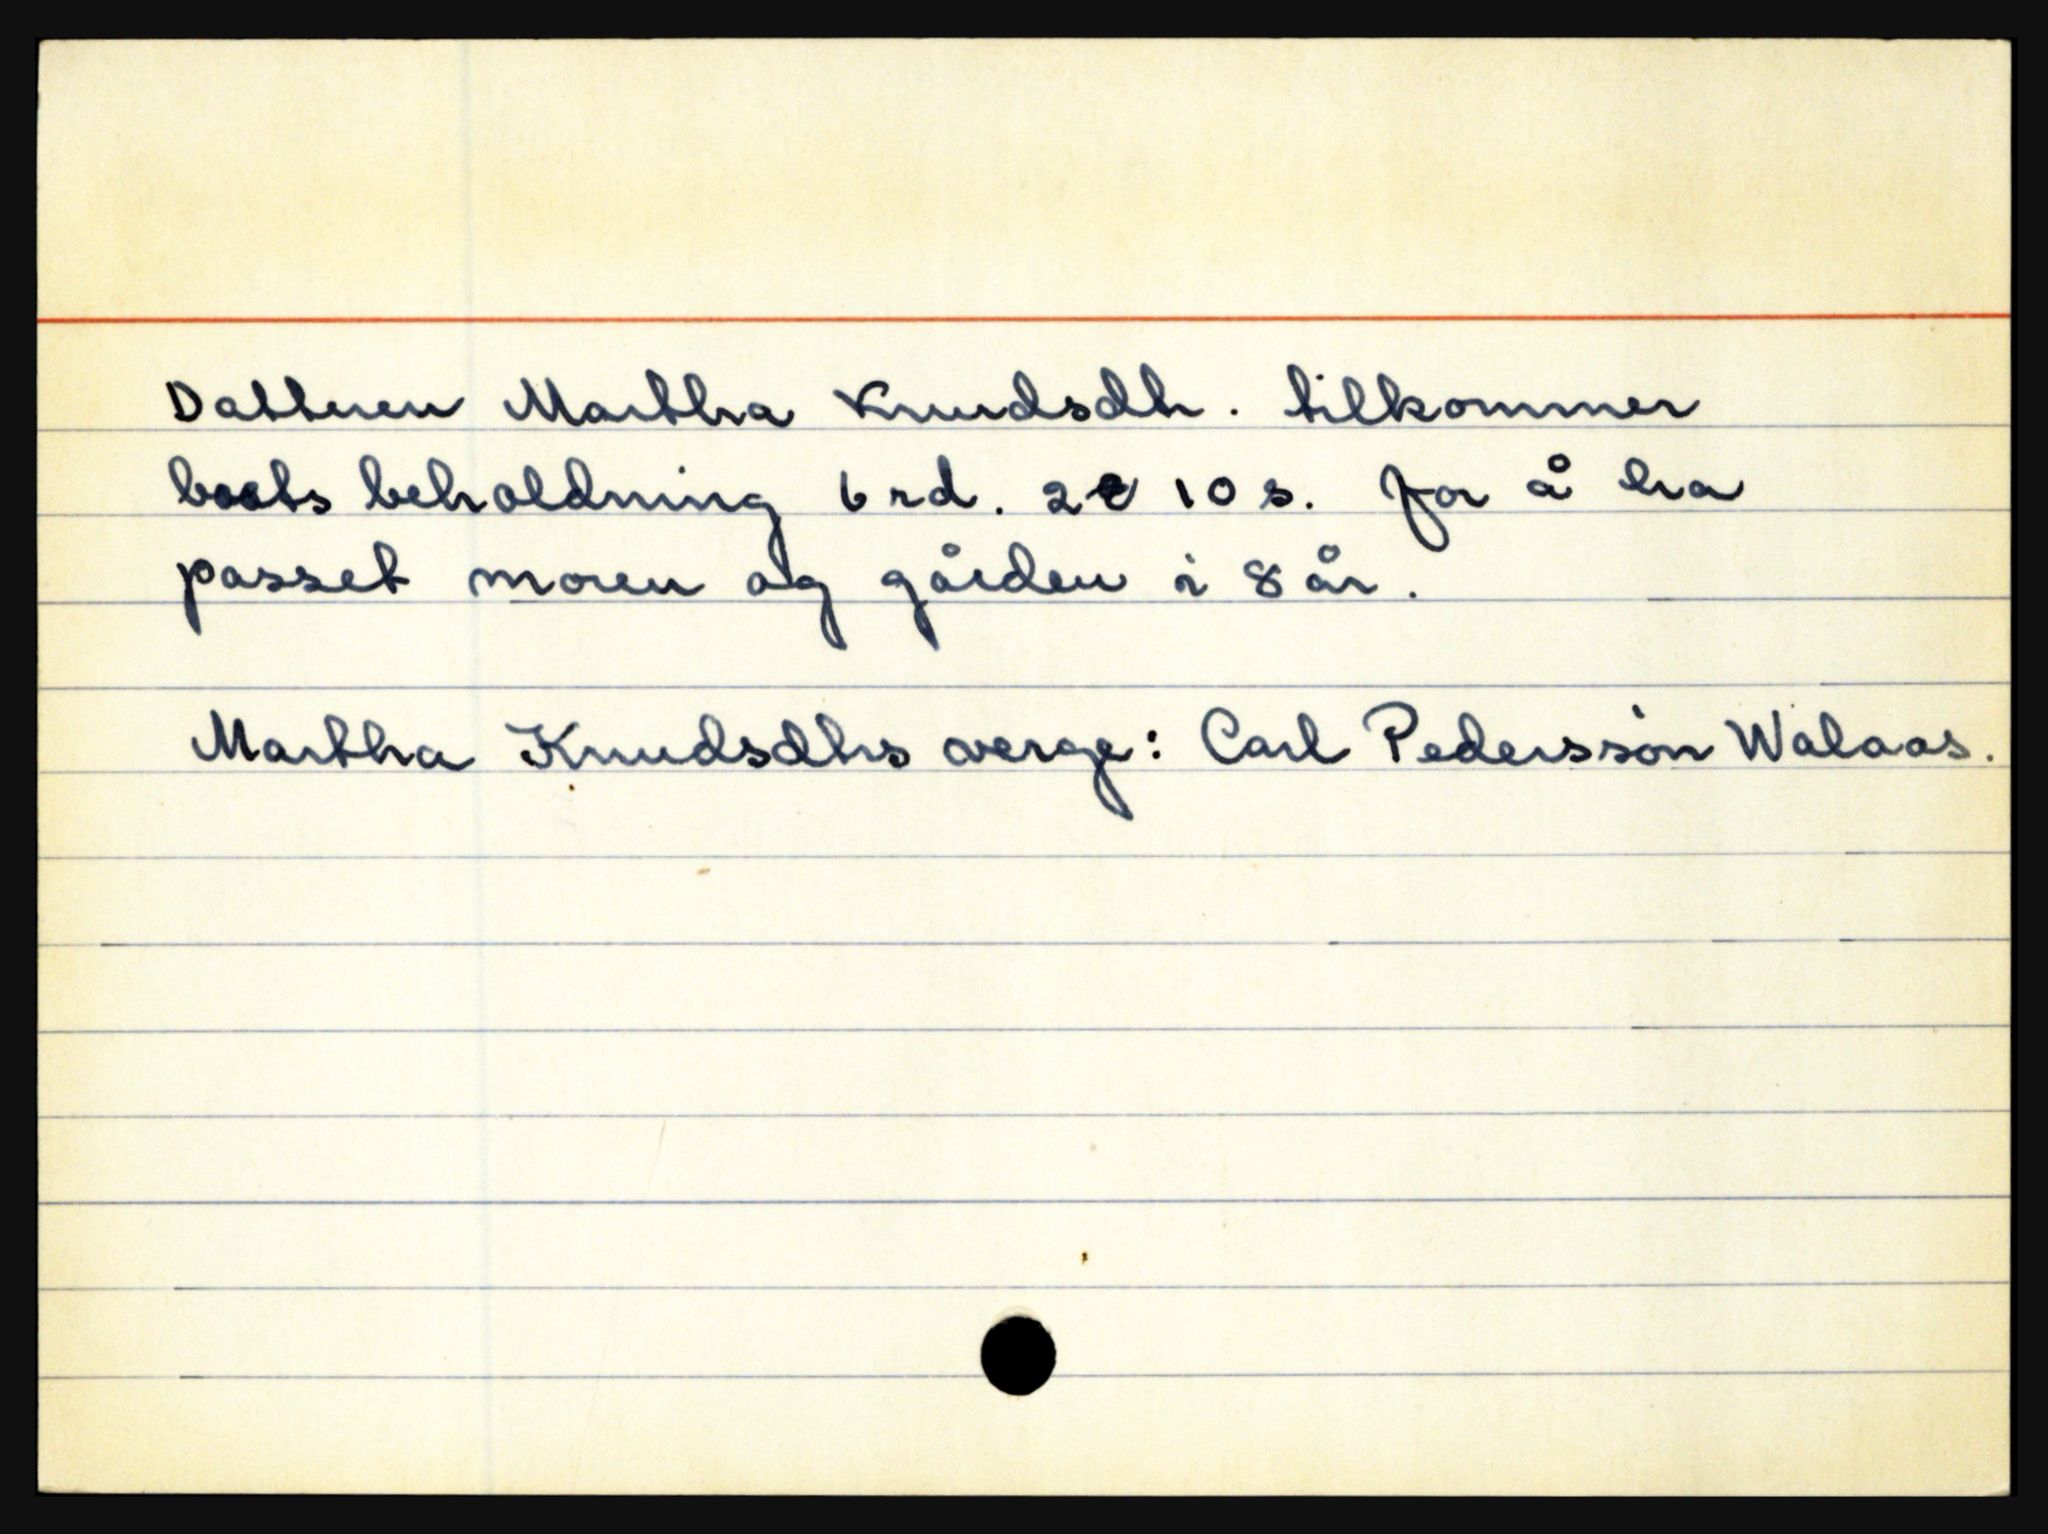 Datteren Martha Knudsdh. tilkommer
boets beholdning 6 rd. 2 10 s. for å ha
passet moren og gården i 8 år.
Martha Knudsdhs verge: Carl Pederssøn Walaas.